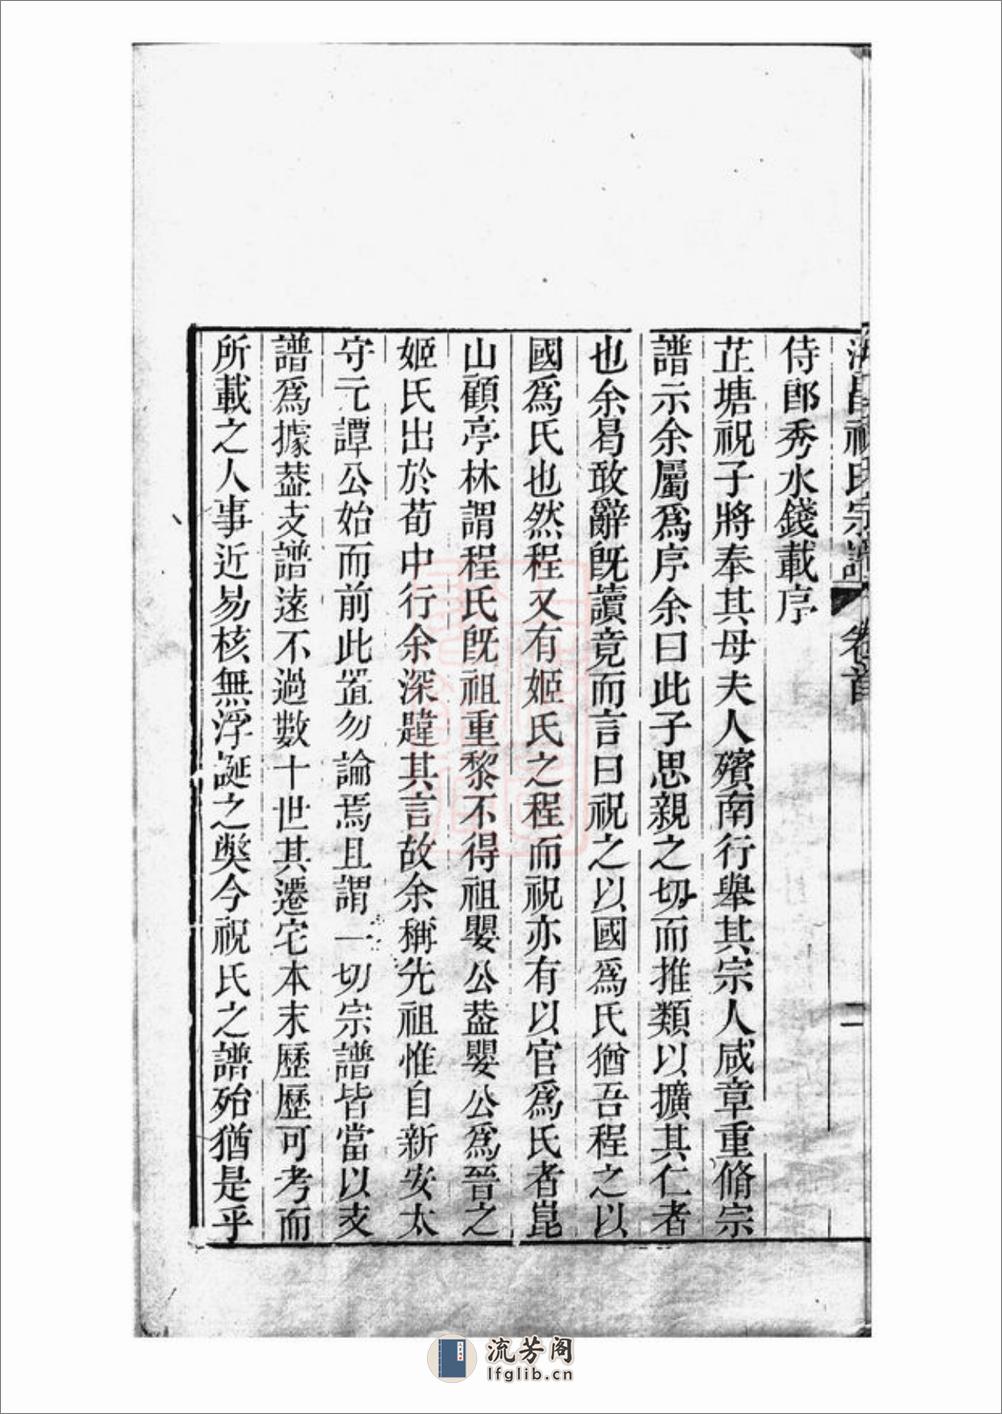 海昌祝氏宗譜 卷首 一
侍郎秀水錢載序
芷塘祝子將奉其母夫人殯南行舉其宗人咸章重脩宗
譜示余屬爲序余曰此子思親之切而推類以擴其仁者
也余曷敢辭旣讀竟而言曰祝之以國爲氏猶吾程之以
國爲氏也然程又有姬氏之程而祝亦有以官爲氏者崑
山顧亭林謂程氏旣祖重黎不得祖嬰公葢嬰公爲晉之
姬氏出於荀中行余深韙其言故余稱先祖惟自新安太
守元譚公始而前此置勿論焉且謂一切宗譜皆當以支
譜爲據葢支譜遠不過數十世其遷宅本末歷歷可考而
所載之人事近易核無浮誕之獘今祝氏之譜殆猶是乎
流芳阁
lfglib.cn